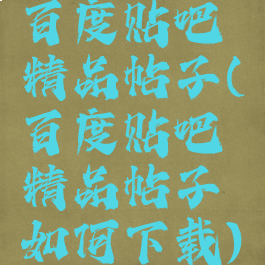 百度贴吧
精品帖子(
百度贴吧
精品帖子
如何下载)